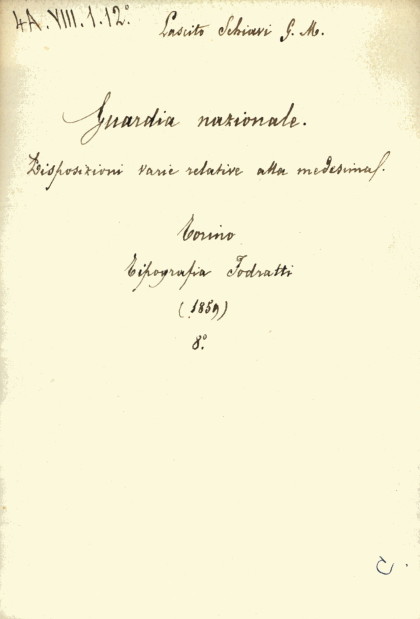 4A.VIII.1.12°
Lascito Schiavi G. M.
Guardia nazionale.
Disposizioni varie relative alla medesima.
Torino
Tipografia Fodratti
(1859)
8°.